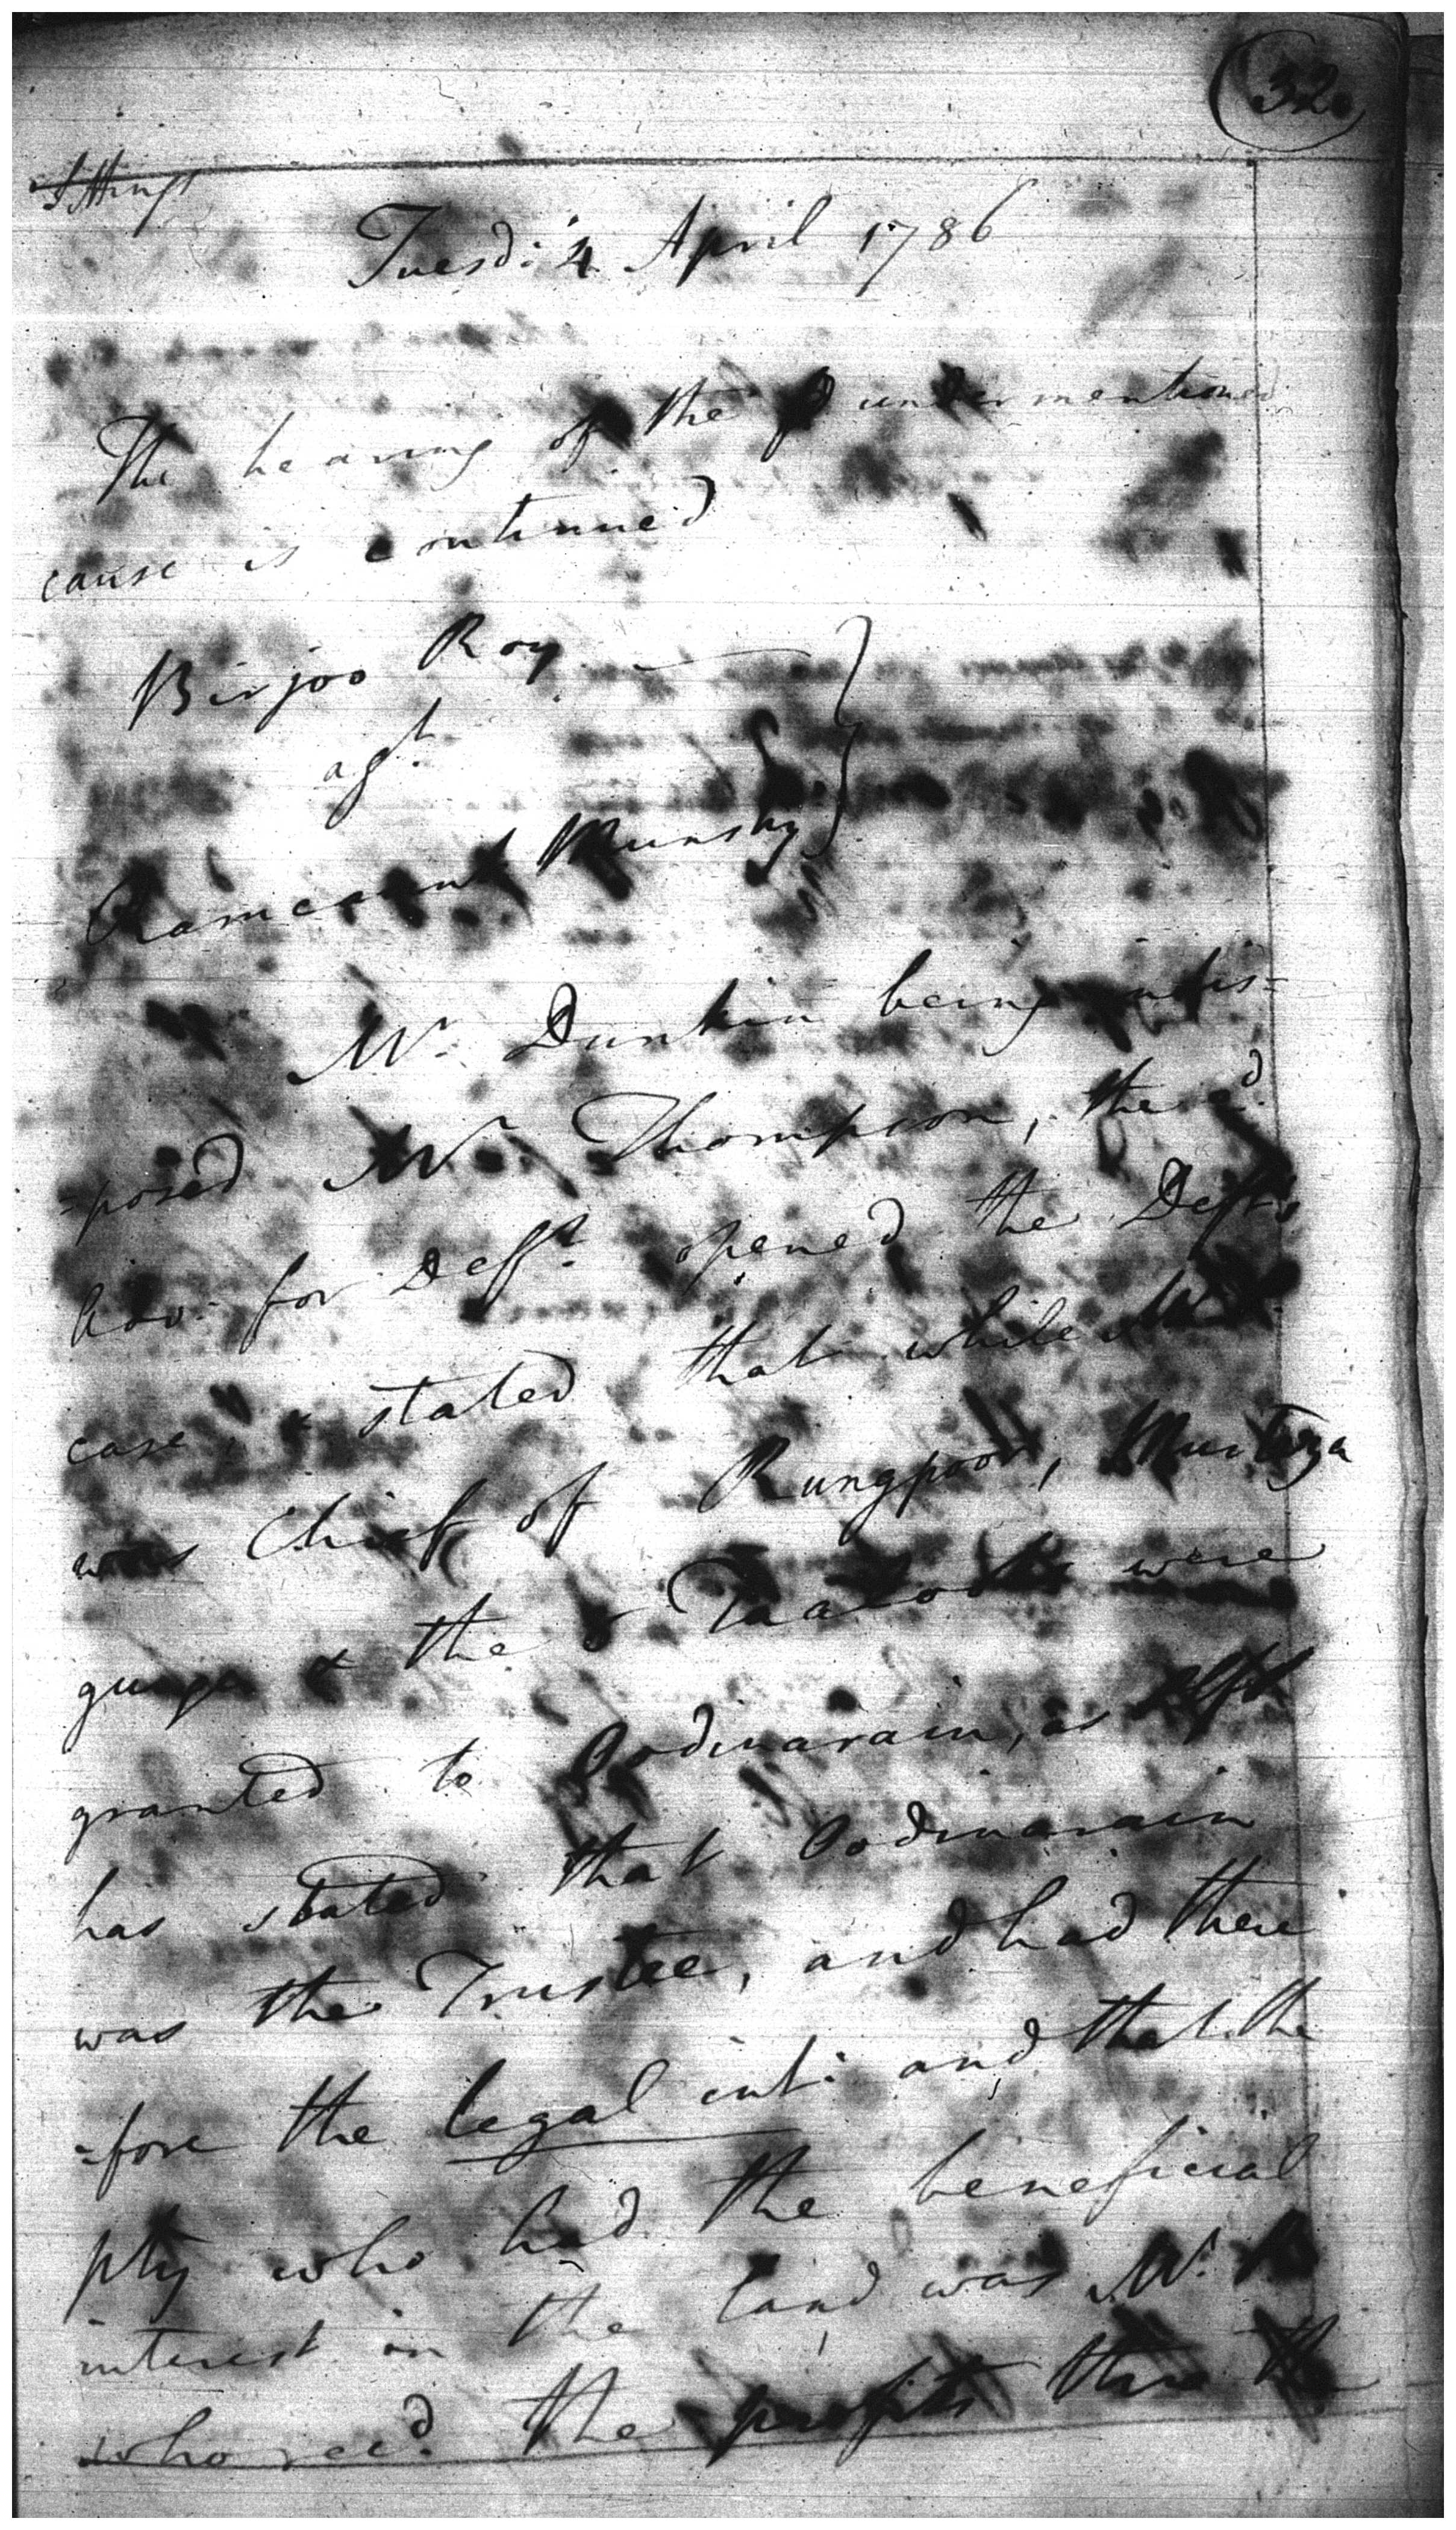 32
Sittings
Tuesd: 4 April 1786
The hearing of the undermentioned
cause is continued
Birjoo Roy
agt
Ramcaunt Munshy
Mr. Dunkin being indis=
=posed Mr Thompson, the 2d
Adv: for Defft. opened the Deft's
case, & stated that while Mr
was Chief of Rungpoor, Murtiza
gunge & the Talooks were
granted to Oodinarain, as
has stated that Oodinarain
was the Trustee, and had there
=fore the legal int: and that the
pty who had the beneficial
interest in the land was Mr.
who recd. the profits thro the